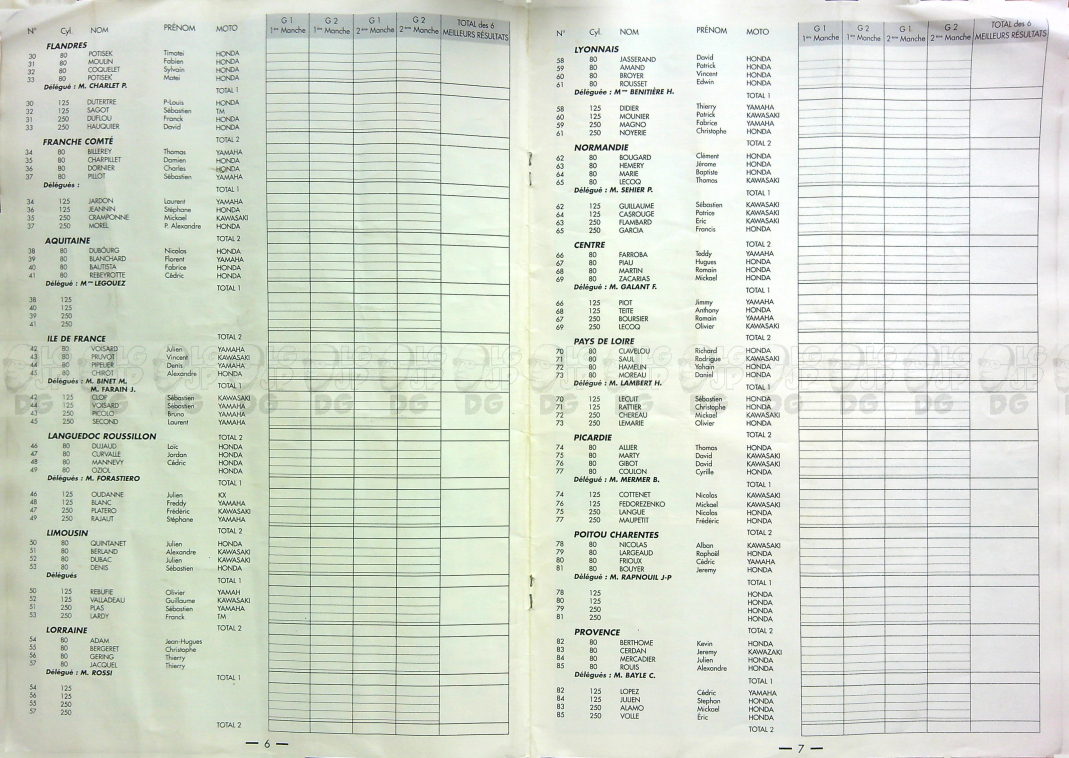 N° Cyl. NOM PRÉNOM MOTO G 1 1ère Manche G 2 1ère Manche G 1 2ème Manche G 2 2ème Manche TOTAL des 6 MEILLEURS RÉSULTATS
FLANDRES
30 80 POTISEK Timotei HONDA
31 80 MOULIN Fabien HONDA
32 80 COQUELET Sylvain HONDA
33 80 POTISEK Matei HONDA
Délégué : M. CHARLET P.
TOTAL 1
30 125 DUTERTRE P-Louis HONDA
32 125 SAGOT Sébastien TM
31 250 DUFLOU Franck HONDA
33 250 HAUQUIER David HONDA
TOTAL 2
FRANCHE COMTÉ
34 80 BILLEREY Thomas YAMAHA
35 80 CHARPILLET Damien HONDA
36 80 DORNIER Charles HONDA
37 80 PILLOT Sébastien YAMAHA
Délégués :
TOTAL 1
34 125 JARDON Laurent YAMAHA
36 125 JEANNIN Stéphane HONDA
35 250 CRAMPONNE Mickael KAWASAKI
37 250 MOREL P. Alexandre HONDA
TOTAL 2
AQUITAINE
38 80 DUBOURG Nicolas HONDA
39 80 BLANCHARD Florent YAMAHA
40 80 BAUTISTA Fabrice HONDA
41 80 REBEYROTTE Cédric HONDA
Délégué : Mme LEGOUEZ
TOTAL 1
38 125
40 125
39 250
41 250
TOTAL 2
ILE DE FRANCE
42 80 VOISARD Julien YAMAHA
43 80 PRUVOT Vincent KAWASAKI
44 80 PIPELIER Denis YAMAHA
45 80 CHIROT Alexandre HONDA
Délégués : M. BINET M.
M. FARAIN J.
TOTAL 1
42 125 CLOP Sébastien KAWASAKI
44 125 VOISARD Sébastien YAMAHA
43 250 PICOLO Bruno YAMAHA
45 250 SECOND Laurent YAMAHA
TOTAL 2
LANGUEDOC ROUSSILLON
46 80 DUJAUD Loic HONDA
47 80 CURVALLE Jordan HONDA
48 80 MANNEVY Cédric HONDA
49 80 OZIOL HONDA
Délégués : M. FORASTIERO
TOTAL 1
46 125 OUDANNE Julien KX
48 125 BLANC Freddy YAMAHA
47 250 PLATERO Frédéric KAWASAKI
49 250 RAJAUT Stéphane YAMAHA
TOTAL 2
LIMOUSIN
50 80 QUINTANET Julien HONDA
51 80 BERLAND Alexandre KAWASAKI
52 80 DUBAC Julien KAWASAKI
53 80 DENIS Sébastien HONDA
Délégués
TOTAL 1
50 125 REBUFIE Olivier YAMAH
52 125 VALLADEAU Guillaume KAWASAKI
51 250 PLAS Sébastien YAMAHA
53 250 LARDY Franck TM
TOTAL 2
LORRAINE
54 80 ADAM Jean-Hugues
55 80 BERGERET Christophe
56 80 GERING Thierry
57 80 JACQUEL Thierry
Délégué : M. ROSSI
TOTAL 1
54 125
56 125
55 250
57 250
TOTAL 2
— 6 —
N° Cyl. NOM PRÉNOM MOTO G 1 1ère Manche G 2 1ère Manche G 1 2ème Manche G 2 2ème Manche TOTAL des 6 MEILLEURS RÉSULTATS
LYONNAIS
58 80 JASSERAND David HONDA
59 80 AMAND Patrick HONDA
60 80 BROYER Vincent HONDA
61 80 ROUSSET Edwin HONDA
Déléguée : Mme BENITIÈRE H.
TOTAL 1
58 125 DIDIER Thierry YAMAHA
60 125 MOUNIER Patrick KAWASAKI
59 250 MAGNO Fabrice YAMAHA
61 250 NOYERIE Christophe HONDA
TOTAL 2
NORMANDIE
62 80 BOUGARD Clément HONDA
63 80 HEMERY Jérome HONDA
64 80 MARIE Baptiste HONDA
65 80 LECOQ Thomas KAWASAKI
Délégué : M. SEHIER P.
TOTAL 1
62 125 GUILLAUME Sébastien KAWASAKI
64 125 CASROUGE Patrice KAWASAKI
63 250 FLAMBARD Eric KAWASAKI
65 250 GARCIA Francis HONDA
TOTAL 2
CENTRE
66 80 FARROBA Teddy YAMAHA
67 80 PIAU Hugues HONDA
68 80 MARTIN Romain HONDA
69 80 ZACARIAS Mickael HONDA
Délégué : M. GALANT F.
TOTAL 1
66 125 PIOT Jimmy YAMAHA
68 125 TEITE Anthony HONDA
67 250 BOURSIER Romain YAMAHA
69 250 LECOQ Olivier KAWASAKI
TOTAL 2
PAYS DE LOIRE
70 80 CLAVELOU Richard HONDA
71 80 SAUL Rodrigue KAWASAKI
72 80 HAMELIN Yohain HONDA
73 80 MOREAU Daniel HONDA
Délégué : M. LAMBERT H.
TOTAL 1
70 125 LECUIT Sébastien HONDA
71 125 RATTIER Christophe HONDA
72 250 CHEREAU Mickael KAWASAKI
73 250 LEMARIE Olivier HONDA
TOTAL 2
PICARDIE
74 80 ALLIER Thomas HONDA
75 80 MARTY David KAWASAKI
76 80 GIBOT David KAWASAKI
77 80 COULON Cyrille HONDA
Délégué : M. MERMER B.
TOTAL 1
74 125 COTTENET Nicolas KAWASAKI
76 125 FEDOREZENKO Mickael KAWASAKI
75 250 LANGUE Nicolas HONDA
77 250 MAUPETIT Frédéric HONDA
TOTAL 2
POITOU CHARENTES
78 80 NICOLAS Alban KAWASAKI
79 80 LARGEAUD Raphaël HONDA
80 80 FRIOUX Cédric YAMAHA
81 80 BOUYER Jeremy HONDA
Délégué : M. RAPNOUIL J-P
TOTAL 1
78 125 HONDA
80 125 HONDA
79 250 HONDA
81 250 HONDA
TOTAL 2
PROVENCE
82 80 BERTHOME Kevin HONDA
83 80 CERDAN Jeremy KAWAZAKI
84 80 MERCADIER Julien HONDA
85 80 ROUIS Alexandre HONDA
Délégués : M. BAYLE C.
TOTAL 1
82 125 LOPEZ Cédric YAMAHA
84 125 JULIEN Stephan HONDA
83 250 ALAMO Mickael HONDA
85 250 VOLLE Eric HONDA
TOTAL 2
— 7 —